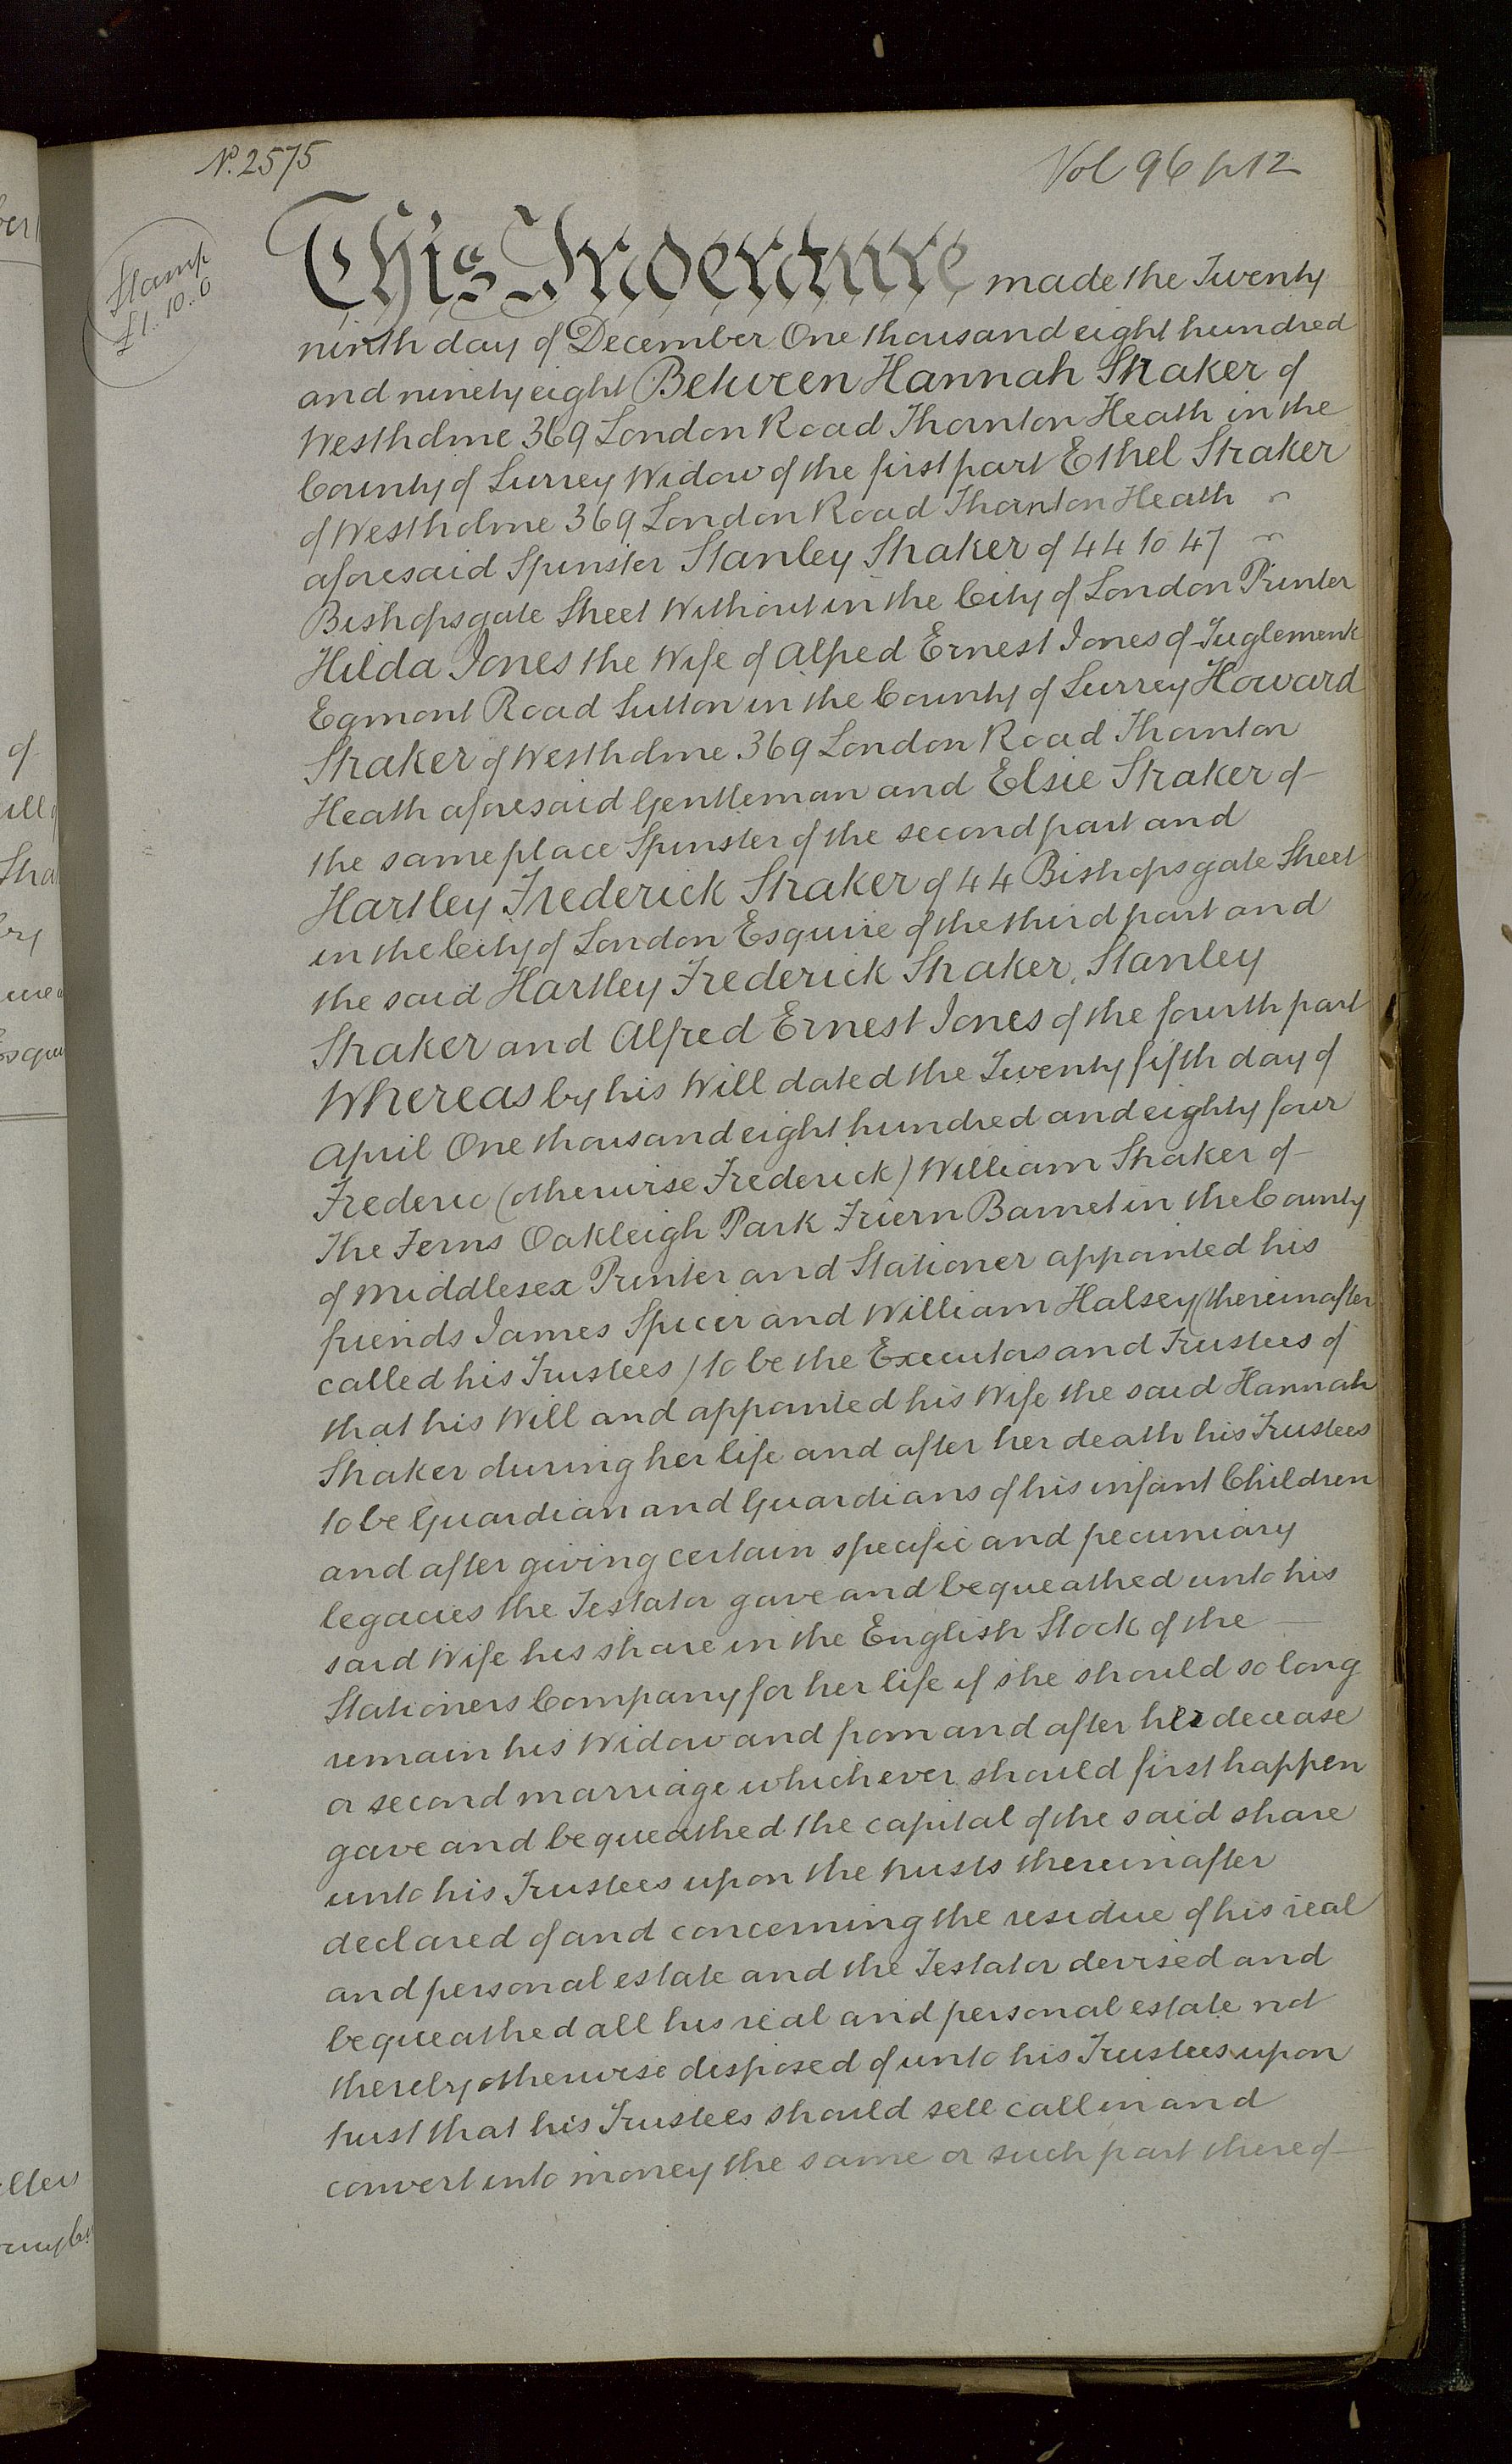 No. 2575
Vol 96 p 12
Stamp
£1..10..0
This Indenture made the Twenty
ninth day of December One thousand eight hundred
and ninety eight Between Hannah Straker of
Westholme 369 London Road Thornton Heath in the
County of Surrey Widow of the first part Ethel Straker
of Westholme 369 London Road Thornton Heath
aforesaid Spinster Stanley Straker of 44 to 47
Bishopsgate Street Without in the City of London Printer
Hilda Jones the Wife of Alfred Ernest Jones of Inglemenk
Egmont Road Sutton in the County of Surrey Howard
Straker of Westholme 369 London Road Thornton
Heath aforesaid Gentleman and Elsie Straker of
the same place Spinster of the second part and
Hartley Frederick Straker of 44 Bishopsgate Street
in the City of London Esquire of the third part and
the said Hartley Frederick Straker, Stanley
Straker and Alfred Ernest Jones of the fourth part
Whereas by his Will dated the Twenty fifth day of
April One thousand eight hundred and eighty four
Frederic (otherwise Frederick) William Straker of
The Ferns Oakleigh Park Friern Barnet in the County
of Middlesex Printer and Stationer appointed his
friends James Spicer and William Halsey (thereinafter
called his Trustees) to be the Executors and Trustees of
that his Will and appointed his Wife the said Hannah
Straker during her life and after her death his Trustees
to be Guardian and Guardians of his infant Children
and after giving certain specific and pecuniary
legacies the Testator gave and bequeathed unto his
said Wife his share in the English Stock of the
Stationers Company for her life if she should so long
remain his Widow and from and after her decease
or second marriage whichever should first happen
gave and bequeathed the capital of the said share
unto his Trustees upon the trusts thereinafter
declared of and concerning the residue of his real
and personal estate and the Testator devised and
bequeathed all his real and personal estate not
thereby otherwise disposed of unto his Trustees upon
trust that his Trustees should sell call in and
convert into money the same or such part thereof